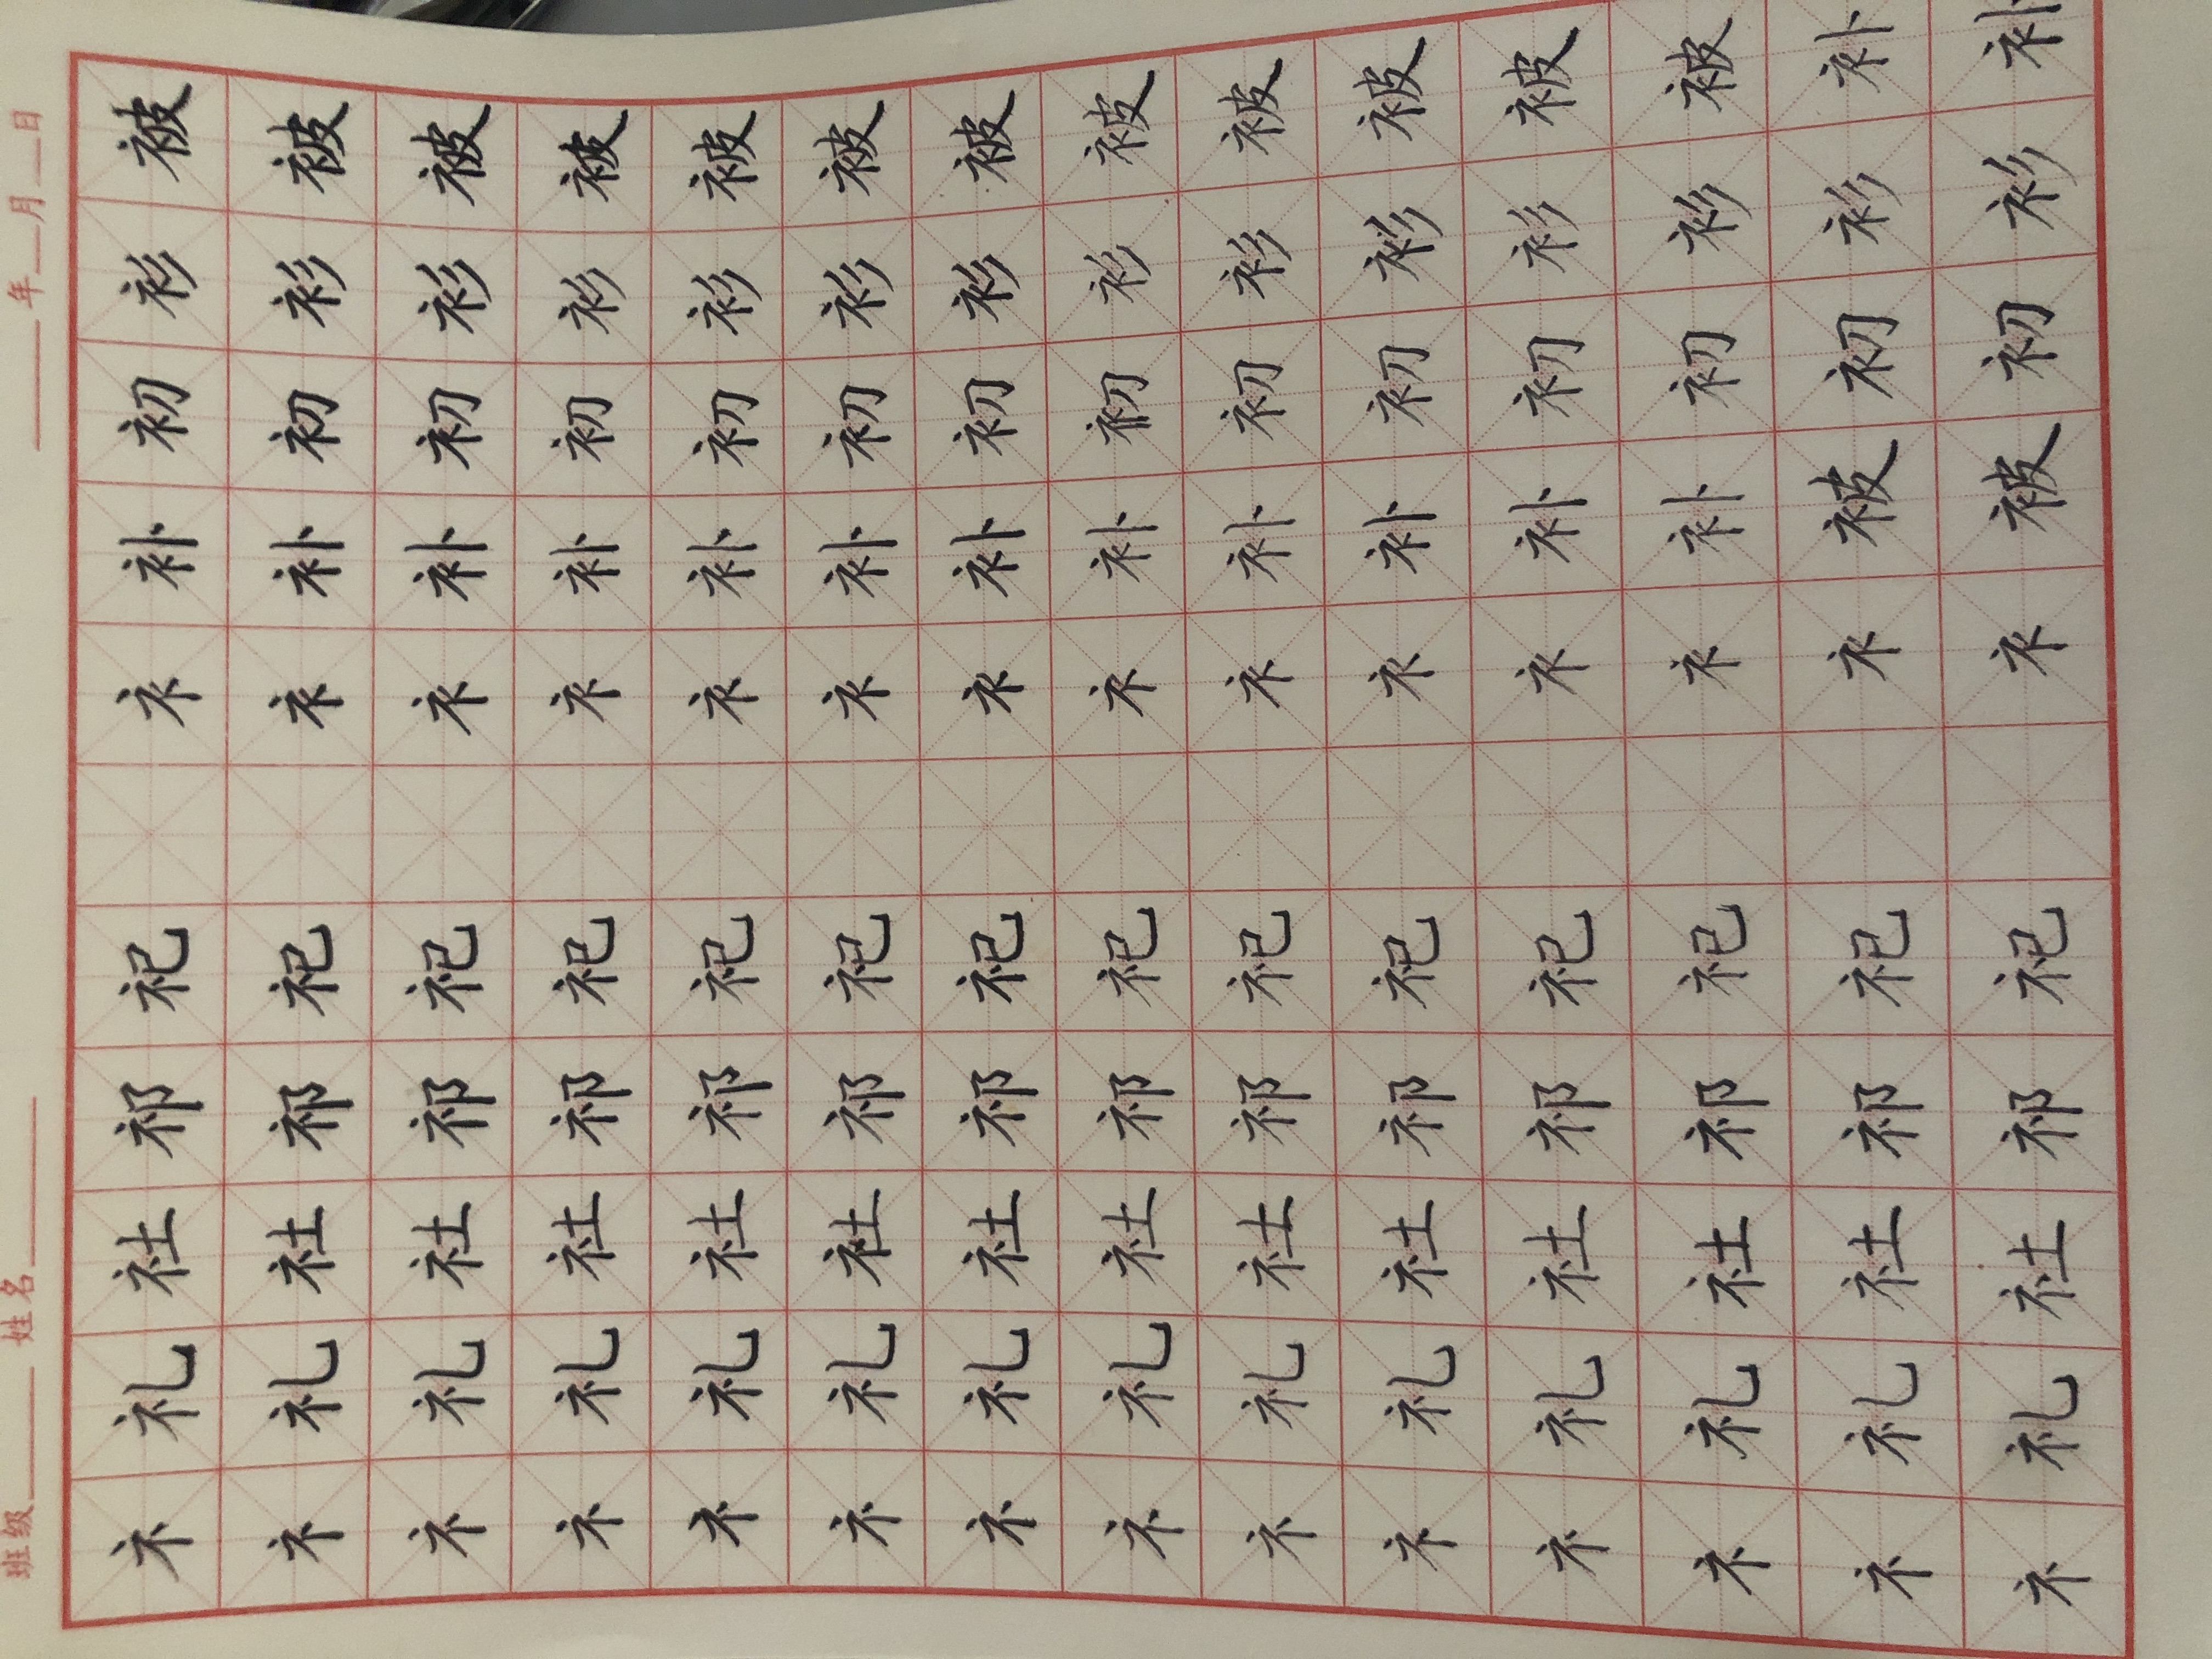 班级 姓名 年 月 日
礻 礼 社 祁 祀 衤 补 初 衫 被
礻 礼 社 祁 祀 衤 补 初 衫 被
礻 礼 社 祁 祀 衤 补 初 衫 被
礻 礼 社 祁 祀 衤 补 初 衫 被
礻 礼 社 祁 祀 衤 补 初 衫 被
礻 礼 社 祁 祀 衤 补 初 衫 被
礻 礼 社 祁 祀 衤 补 初 衫 被
礻 礼 社 祁 祀 衤 补 初 衫 被
礻 礼 社 祁 祀 衤 补 初 衫 被
礻 礼 社 祁 祀 衤 补 初 衫 被
礻 礼 社 祁 祀 衤 补 初 衫 被
礻 礼 社 祁 祀 衤 补 初 衫 被
礻 礼 社 祁 祀 衤 被 初 衫 补
礻 礼 社 祁 祀 衤 被 初 衫 补